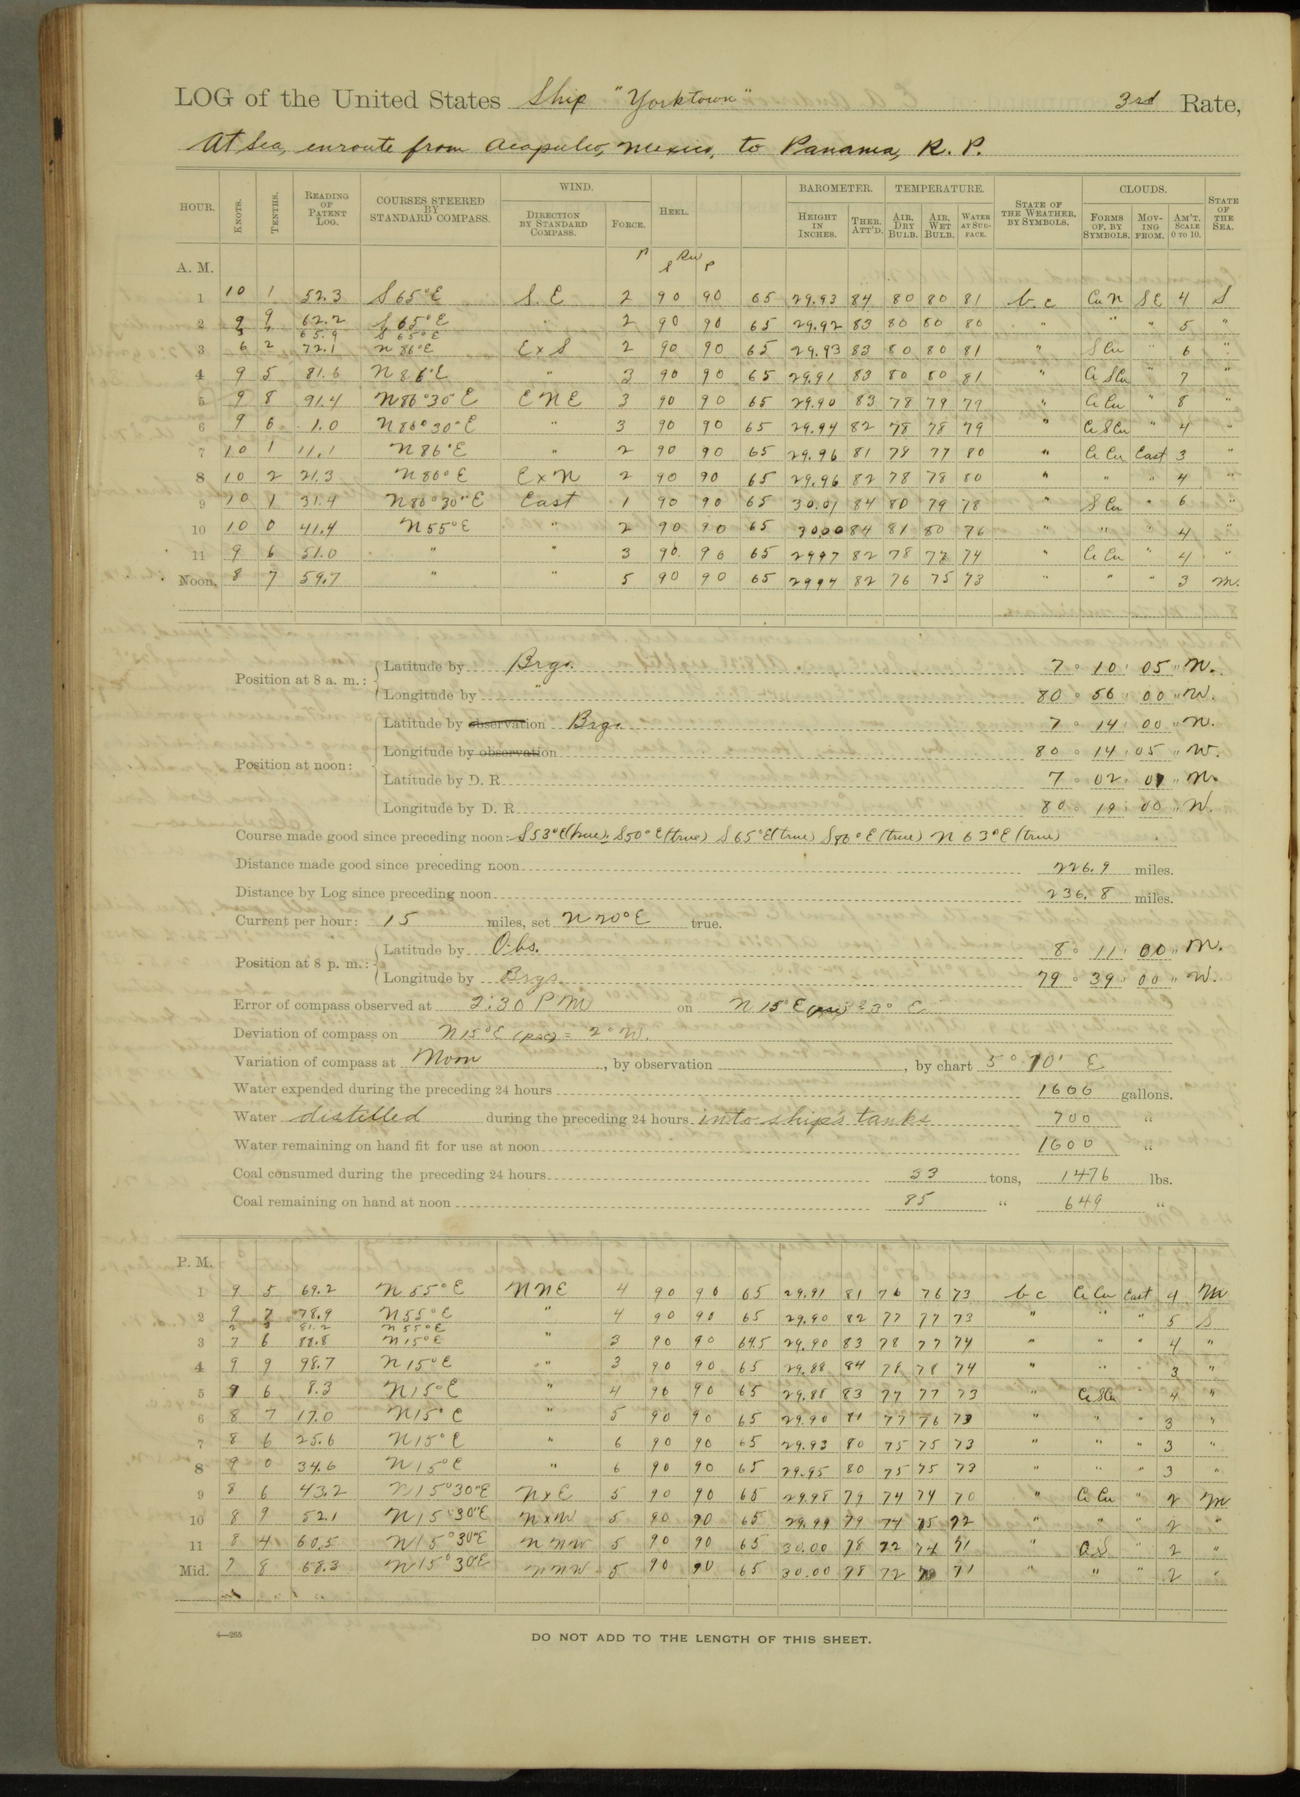 LOG of the United States Ship "Yorktown" 3rd Rate,
At Sea, enroute from Acapulco, Mexico, to Panama, R. P.
HOUR. KNOTS. TENTHS. READING OF PATENT LOG. COURSES STEERED BY STANDARD COMPASS. WIND. DIRECTION BY STANDARD COMPASS. FORCE. HEEL. BAROMETER. HEIGHT IN INCHES. THER. ATT'D. TEMPERATURE. AIR, DRY BULB. AIR, WET BULB. WATER AT SURFACE. STATE OF THE WEATHER, BY SYMBOLS. CLOUDS. FORMS OF, BY SYMBOLS. MOVING FROM. AM'T. SCALE 0 TO 10. STATE OF THE SEA.
A. M.
1 10 1 52.3 S 65° E S. E 2 90 90 65 29.93 84 80 80 81 b. c Cu N SE 4 S
2 9 9 62.2 S 65° E " 2 90 90 65 29.92 83 80 80 80 " " " 5 "
65.9 S 65° E
3 6 2 72.1 N 86° E E x S 2 90 90 65 29.93 83 80 80 81 " S Cu " 6 "
4 9 5 81.6 N 86° E " 3 90 90 65 29.91 83 80 80 81 " Ci S Cu " 7 "
5 9 8 91.4 N 86° 30' E E N E 3 90 90 65 29.90 83 78 79 79 " Ci Cu " 8 "
6 9 6 1.0 N 86° 30' E " 3 90 90 65 29.94 82 78 78 79 " Ci S Cu " 4 "
7 10 1 11.1 N 86° E " 2 90 90 65 29.96 81 78 77 80 " Ci Cu East 3 "
8 10 2 21.3 N 86° E E x N 2 90 90 65 29.96 82 78 78 80 " " " 4 "
9 10 1 31.4 N 86° 30" E East 1 90 90 65 30.01 84 80 79 78 " S Cu " 6 "
10 10 0 41.4 N 55° E " 2 90 90 65 30.00 84 81 80 76 " " " 4 "
11 9 6 51.0 " " 3 90 90 65 29.97 82 78 78 74 " Ci Cu " 4 "
Noon, 8 7 59.7 " " 5 90 90 65 29.94 82 76 75 73 " " " 3 M.
Position at 8 a. m.: Latitude by Brgs. 7° 10' 05" N.
Longitude by " 80° 56' 00" W.
Position at noon: Latitude by observation Brgs. 7° 14' 00" N.
Longitude by observation 80° 14' 05" W.
Latitude by D. R. 7° 02' N.
Longitude by D. R. 80° 19' 00" W.
Course made good since preceding noon: S 53° E (true); S 50° E (true) S 65° E (true) S 86° E (true) N 63° E (true)
Distance made good since preceding noon 226.9 miles.
Distance by Log since preceding noon 236.8 miles.
Current per hour: 15 miles, set N 20° E true.
Position at 8 p. m.: Latitude by Obs. 8° 11' 00" N.
Longitude by Brgs. 79° 39' 00" W.
Error of compass observed at 2:30 P M on N 15° E 3° E
Deviation of compass on N 15° E (psc) = 2° W.
Variation of compass at Noon, by observation, by chart 5° 10' E
Water expended during the preceding 24 hours 1600 gallons.
Water distilled during the preceding 24 hours into ship's tanks 700 "
Water remaining on hand fit for use at noon 1600 "
Coal consumed during the preceding 24 hours 33 tons, 1476 lbs.
Coal remaining on hand at noon 85 " 649 "
P. M.
1 9 5 69.2 N 55° E N N E 4 90 90 65 29.91 81 76 76 73 b c Ci Cu East 4 M
2 9 7 78.9 N 55° E " 4 90 90 65 29.90 82 77 77 73 " " " 5 S
2 3 81.2 N 55° E
3 7 6 88.8 N 15° E " 3 90 90 64.5 29.90 83 78 77 74 " " " 4 "
4 9 9 98.7 N 15° E " 3 90 90 65 29.88 84 78 78 74 " " " 3 "
5 9 6 8.3 N 15° E " 4 90 90 65 29.88 83 77 77 73 " Ci S Cu " 4 "
6 8 7 17.0 N 15° E " 5 90 90 65 29.90 81 77 76 73 " " " 3 "
7 8 6 25.6 N 15° E " 6 90 90 65 29.93 80 75 75 73 " " " 3 "
8 9 0 34.6 N 15° E " 6 90 90 65 29.95 80 75 75 73 " " " 3 "
9 8 6 43.2 N 15° 30" E N x E 5 90 90 65 29.98 79 74 74 70 " Ci Cu " 2 M
10 8 9 52.1 N 15° 30" E N x W 5 90 90 65 29.99 79 74 75 72 " " " 2 "
11 8 4 60.5 N 15° 30" E N N W 5 90 90 65 30.00 78 72 74 71 " " 2 "
Mid. 7 8 68.3 N 15° 30" E N N W 5 90 90 65 30.00 78 72 71 " " " 2 "
4—265
DO NOT ADD TO THE LENGTH OF THIS SHEET.